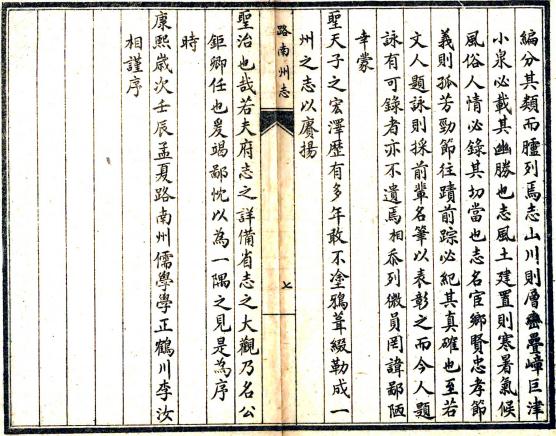 編分其類而臚列焉志山川則層巒疊嶂巨津
小泉必載其幽勝也志風土建置則寒暑氣候
風俗人情必錄其切當也志名宦鄉賢忠孝節
義則孤芳勁節往蹟前踪必紀其真確也至若
文人題詠則採前輩名筆以表彰之而今人題
詠有可錄者亦不遺焉相忝列微員罔諱鄙陋
幸蒙
聖天子之宏澤歷有多年敢不塗鴉葺綴勒成一
州之志以賡揚
路南州志
七
聖治也哉若夫府志之詳備省志之大觀乃名公
鉅卿任也爰竭鄙忱以為一隅之見是為序
時
康熙歲次壬辰孟夏路南州儒學學正鶴川李汝
相謹序